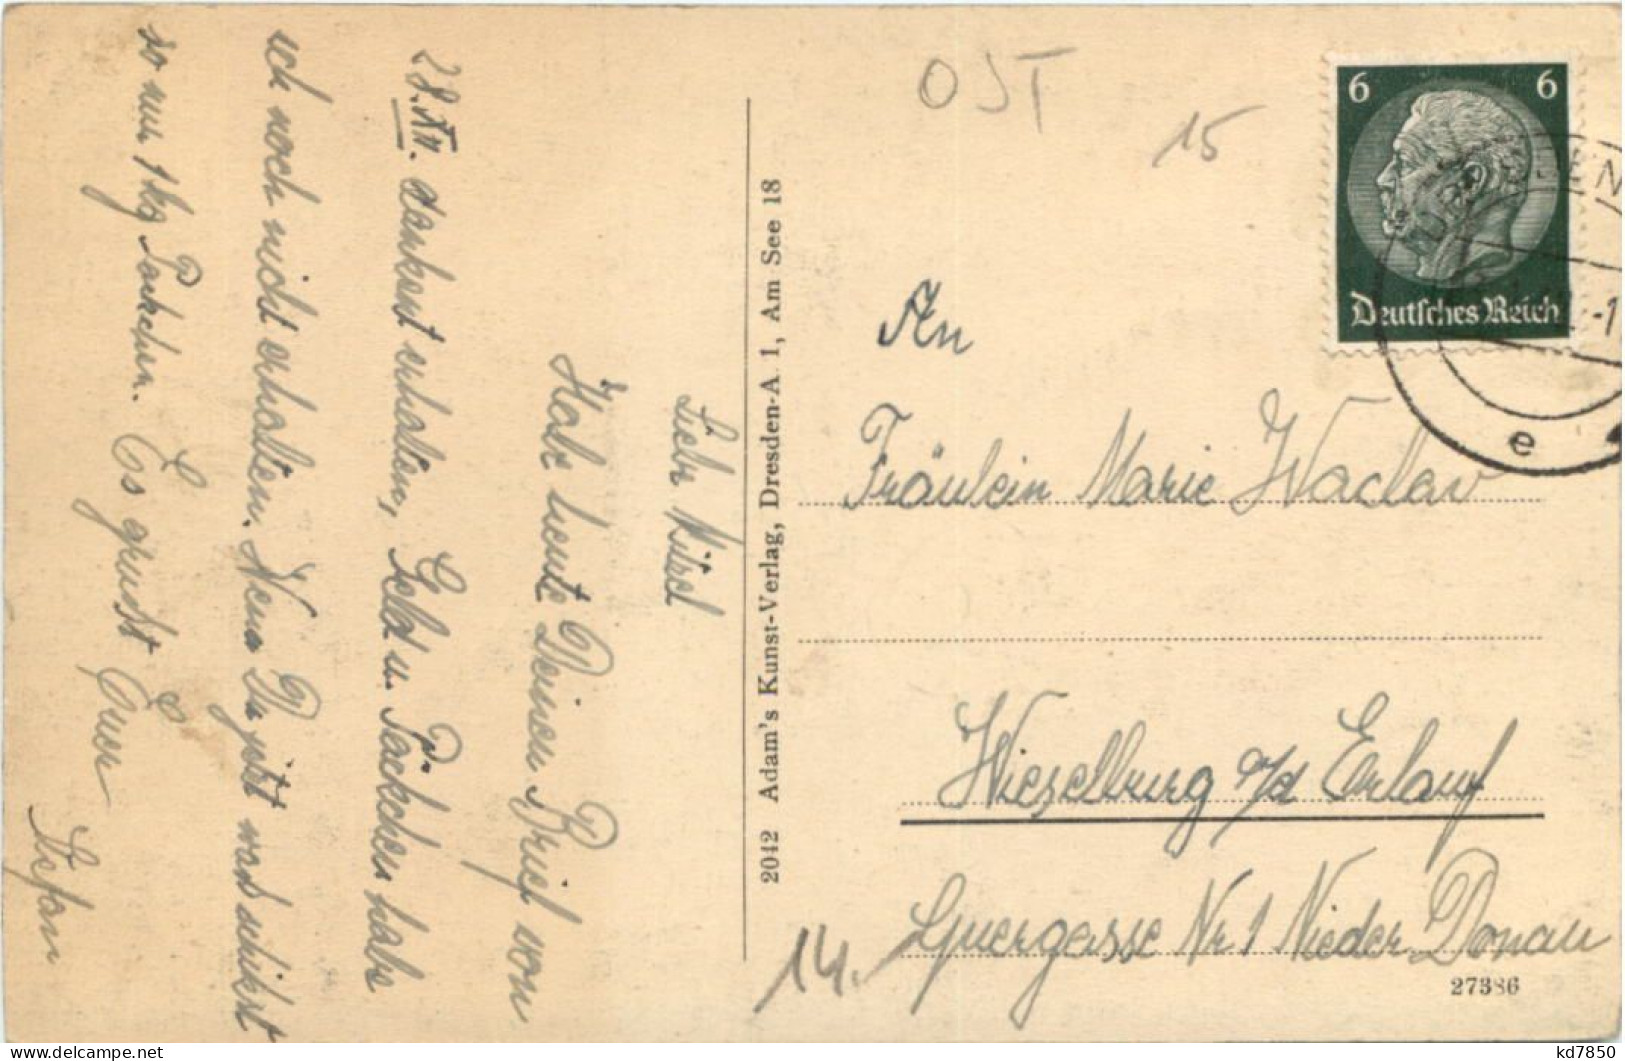 Liebe Mitzl
Habe heute Deinen Brief von
28.XII. dankend erhalten, Geld u. Päckchen habe
ich noch nicht erhalten. Wenn Du jetzt was schickst
so nur 1 kg Packchen. Es grüsst Euer
Stefan
2042 Adam's Kunst-Verlag, Dresden-A. 1, Am See 18
OST
15
6 6
Deutsches Reich
e
An
Fräulein Marie Waclav
Wieselburg a/d Erlauf
Quergasse Nr 1 Nieder Donau
14.
27386
kd7850